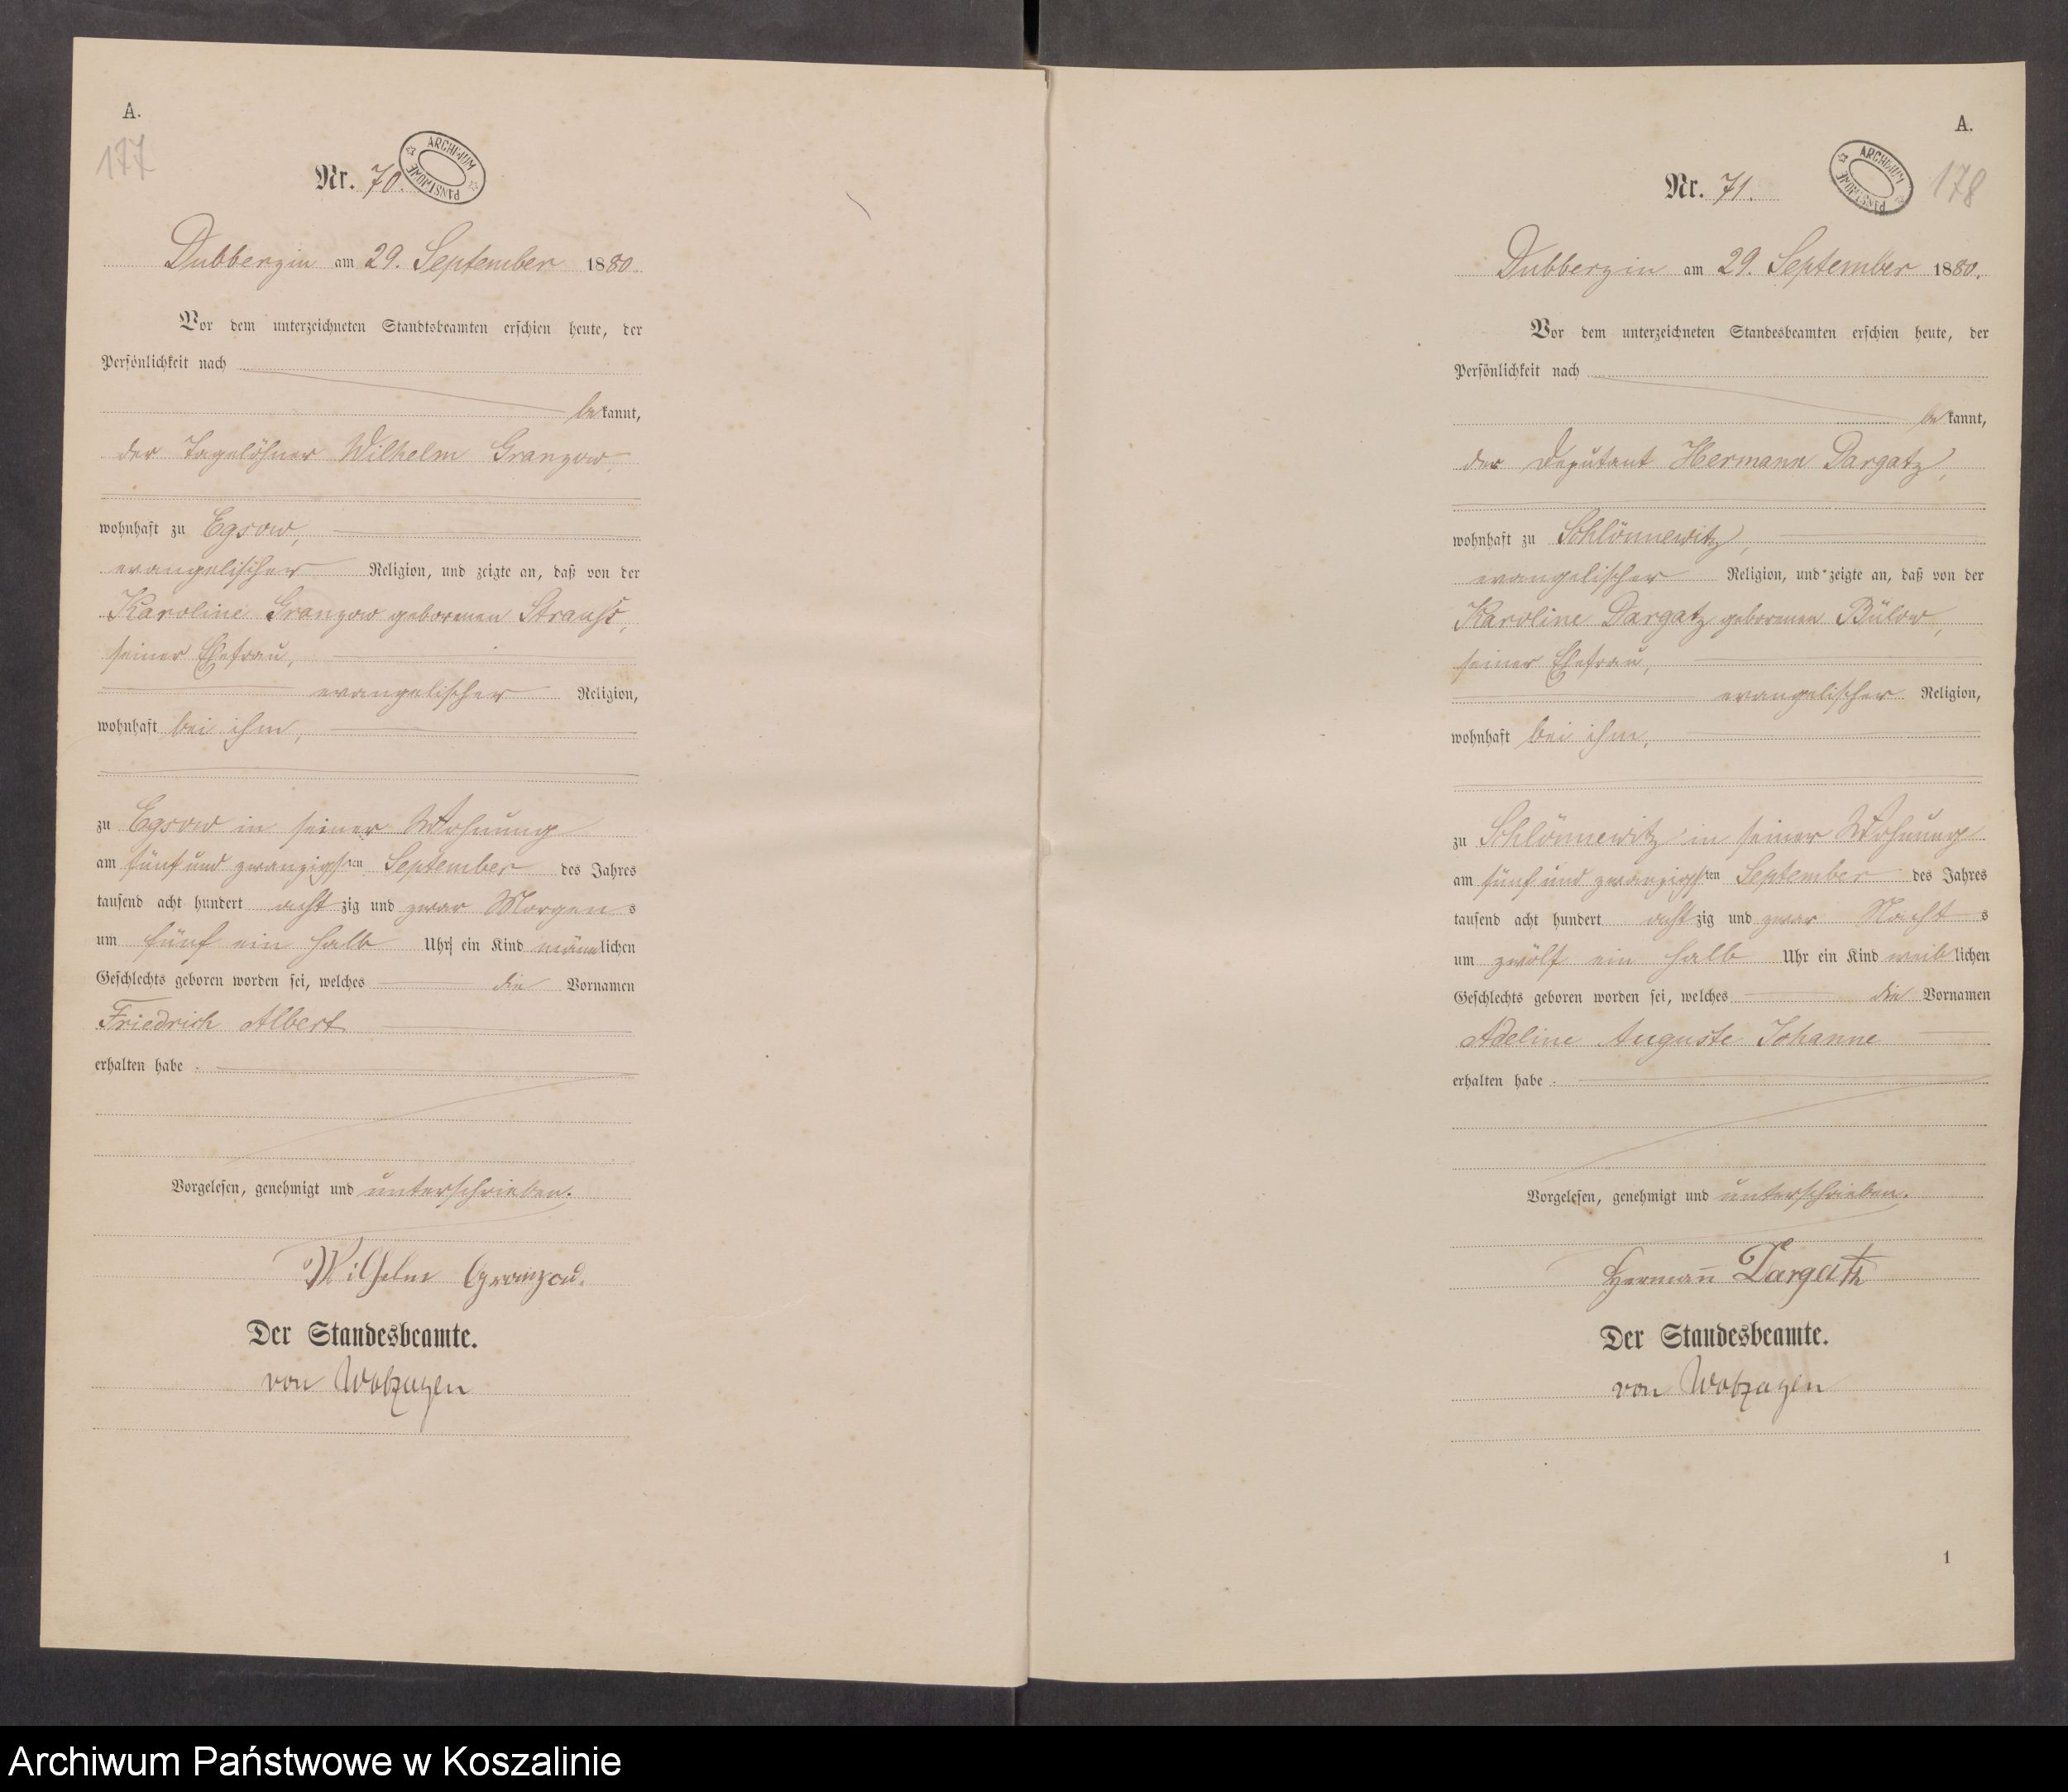 A.
177
Nr. 70.
ARCHIWUM PAŃSTWOWE
Dubberzin am 29. September 1880.
Vor dem unterzeichneten Standtsbeamten erschien heute, der
Persönlichkeit nach
bekannt,
der Tagelöhner Wilhelm Granzow,
wohnhaft zu Egsow,
evangelischer Religion, und zeigte an, daß von der
Karoline Granzow geborenen Strauß,
seiner Ehefrau,
evangelischer Religion,
wohnhaft bei ihm,
zu Egsow in seiner Wohnung
am fünf und zwanzigsten September des Jahres
tausend acht hundert achtzig und zwar Morgens
um fünf ein halb Uhr ein Kind männlichen
Geschlechts geboren worden sei, welches die Vornamen
Friedrich Albert
erhalten habe.
Vorgelesen, genehmigt und unterschrieben.
Wilhelm Granzow.
Der Standesbeamte.
von
A.
178
Nr. 71.
ARCHIWUM PAŃSTWOWE
Dubberzin am 29. September 1880.
Vor dem unterzeichneten Standesbeamten erschien heute, der
Persönlichkeit nach
bekannt,
der Deputant Hermann Dargatz,
wohnhaft zu Schlönnewitz,
evangelischer Religion, und zeigte an, daß von der
Karoline Dargatz geborenen Bülow,
seiner Ehefrau,
evangelischer Religion,
wohnhaft bei ihm,
zu Schlönnewitz in seiner Wohnung
am fünf und zwanzigsten September des Jahres
tausend acht hundert achtzig und zwar Nachts
um zwölf ein halb Uhr ein Kind weiblichen
Geschlechts geboren worden sei, welches die Vornamen
Adeline Auguste Johanne
erhalten habe.
Vorgelesen, genehmigt und unterschrieben.
Hermann Dargatz
Der Standesbeamte.
von
1
Archiwum Państwowe w Koszalinie